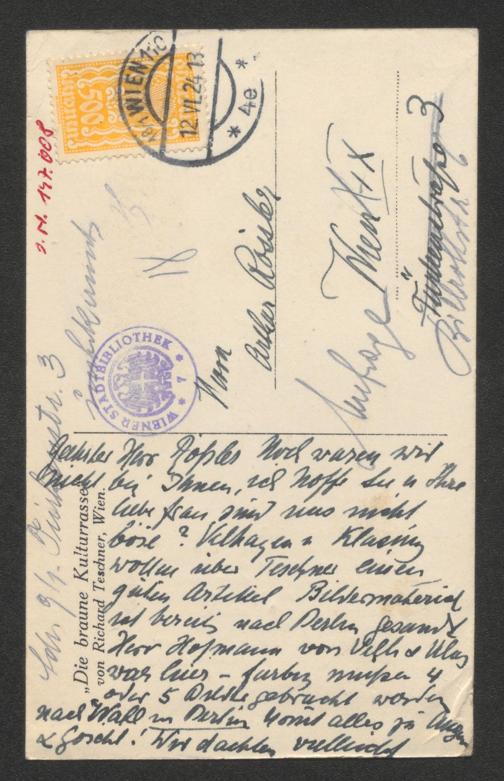 500
KRONEN
18/1 WIEN 110
12.VI.24 13
* 4e *
J.N. 147.008
WIENER STADTBIBLIOTHEK
* 7 *
IX
Herrn
Arthur Roessler
Wien XIX
3
Billrothstr. 6
Anfrage
„Die braune Kulturrasse“
von Richard Teschner, Wien.
Herr Roessler Noch waren wir
nicht bei Ihnen, ich hoffe Sie u Ihre
liebe Frau sind uns nicht
böse? Velhagen u Klasing
wollen über Teschner einen
guten Artikel Bildermaterial
ist bereits nach Berlin gesandt
Herr Hofmann von Velh & Klas
war hier – farbig müssen 4
oder 5 gebracht werden
nach Wall in Berlin kommt alles zu Langen
& Goschl! Wir dachten vielleicht